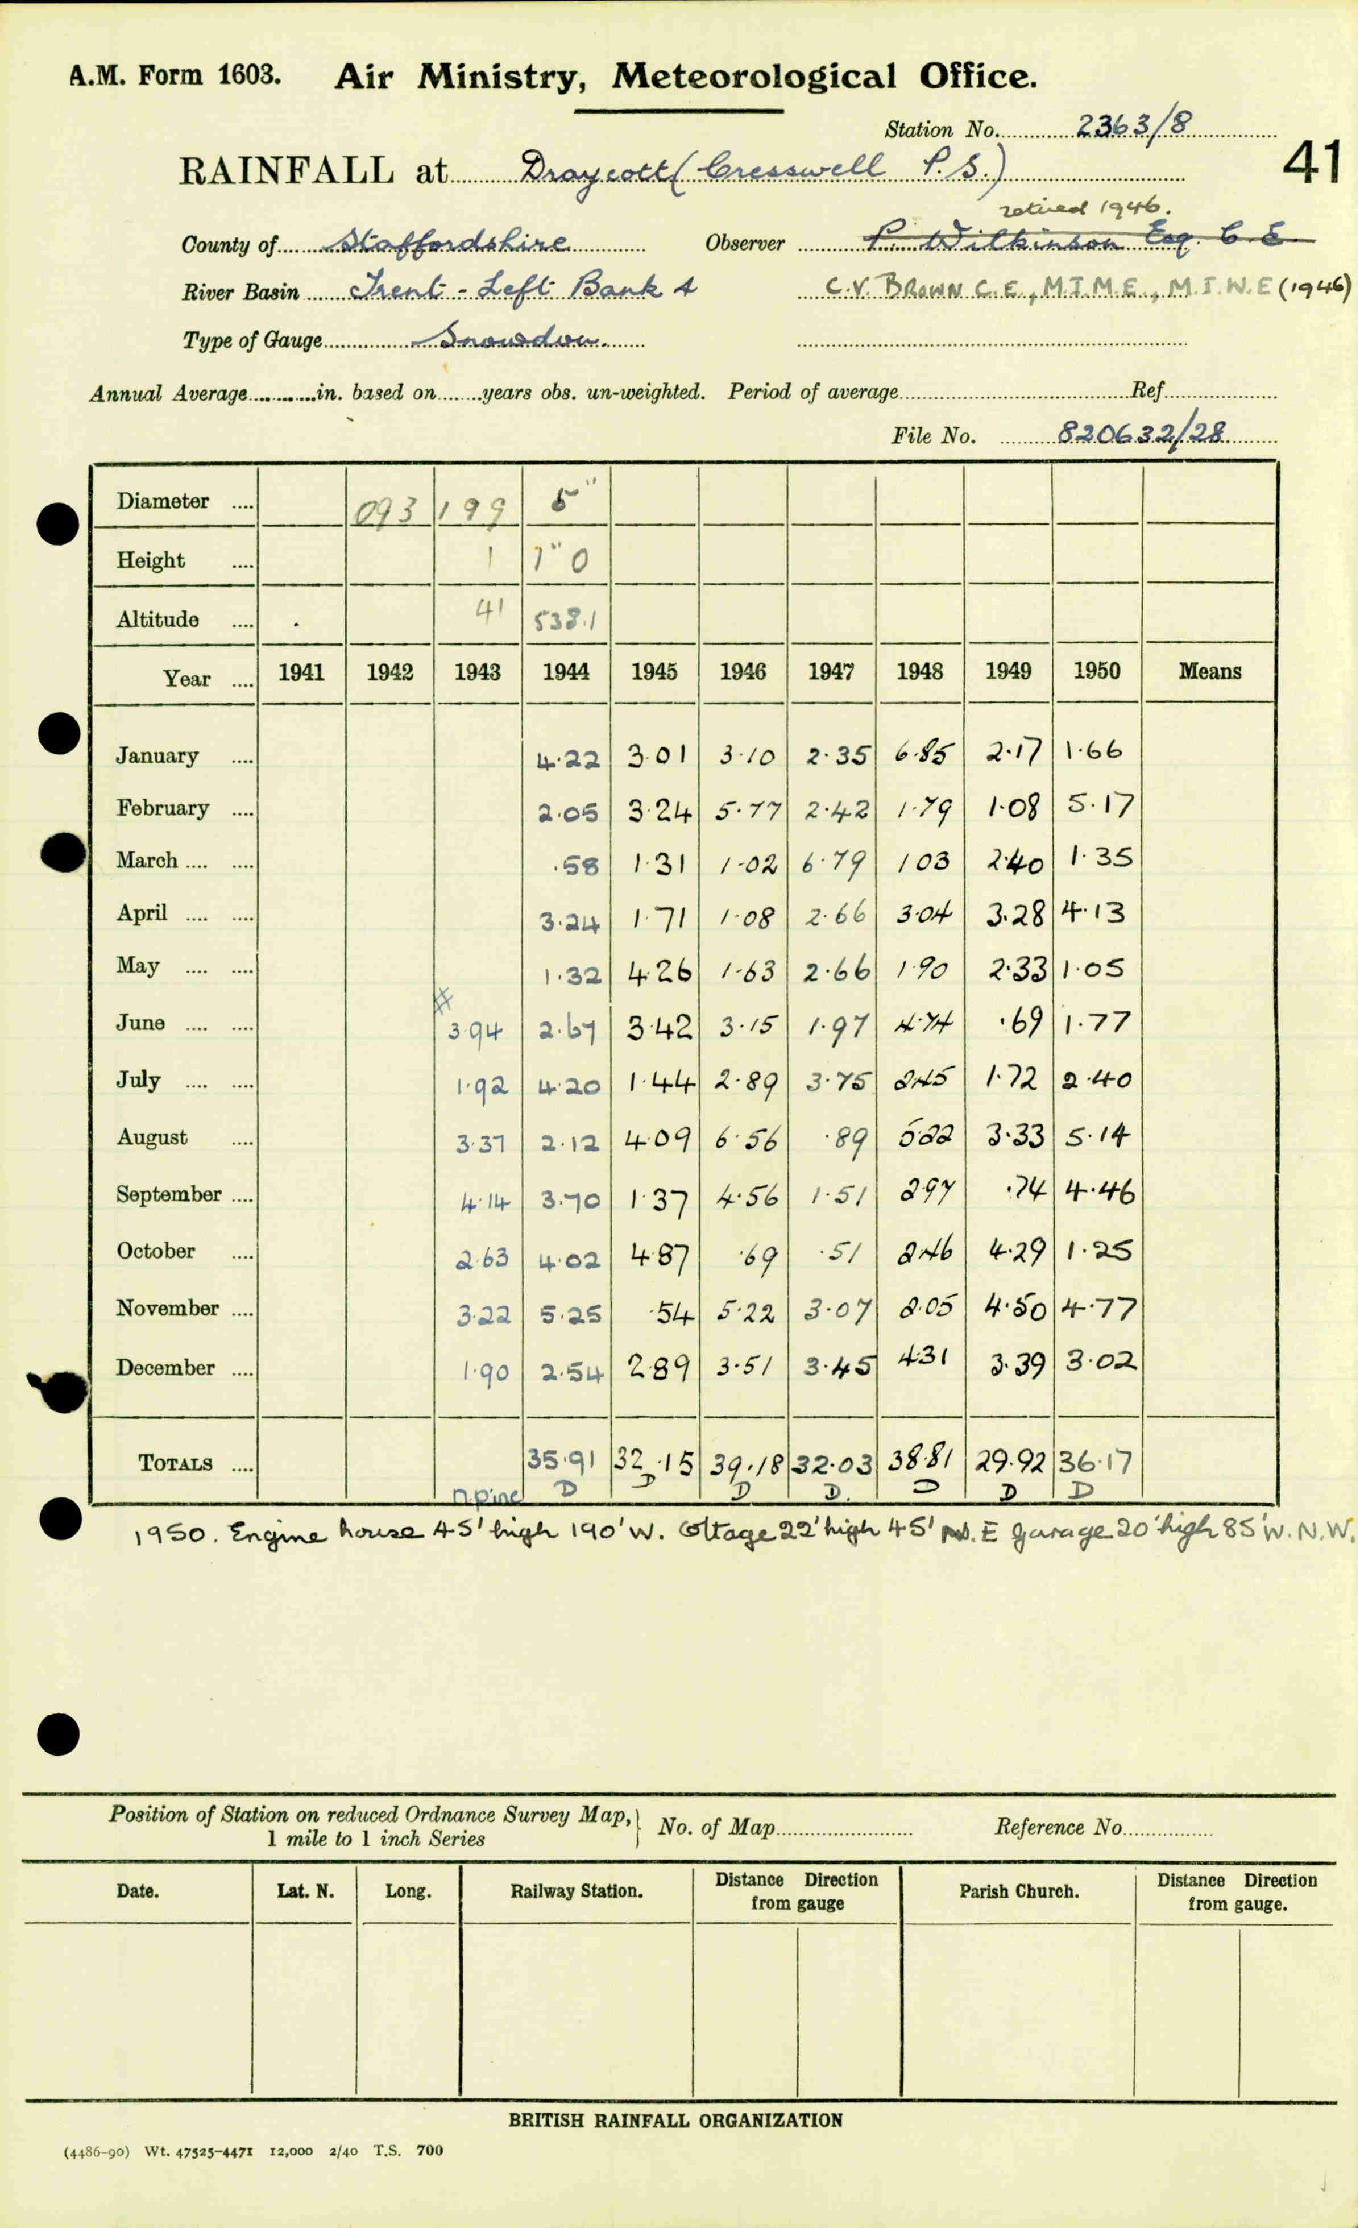 A.M. Form 1603. Air Ministry, Meteorological Office.
Station No. 2363/8
41
RAINFALL at Draycott (Cresswell P.S.)
retired 1946.
County of Staffordshire Observer P. Wilkinson Esq. C.E.
River Basin Trent - Left Bank 4 C.V. BROWN C.E., M.I.M.E., M.I.W.E (1946)
Type of Gauge Snowdon.
Annual Average in. based on years obs. un-weighted. Period of average Ref.
File No. 820632/28
Diameter 093 199 5"
Height 1 1" 0
Altitude 41 538.1
Year 1941 1942 1943 1944 1945 1946 1947 1948 1949 1950 Means
January 4.22 3.01 3.10 2.35 6.85 2.17 1.66
February 2.05 3.24 5.77 2.42 1.79 1.08 5.17
March .58 1.31 1.02 6.79 1 03 2.40 1.35
April 3.24 1.71 1.08 2.66 3.04 3.28 4.13
May 1.32 4.26 1.63 2.66 1.90 2.33 1.05
June #3.94 2.67 3.42 3.15 1.97 4.74 .69 1.77
July 1.92 4.20 1.44 2.89 3.75 2.45 1.72 2.40
August 3.37 2.12 4.09 6.56 .89 5.22 3.33 5.14
September 4.14 3.70 1.37 4.56 1.51 2.97 .74 4.46
October 2.63 4.02 4.87 .69 .51 2.46 4.29 1.25
November 3.22 5.25 .54 5.22 3.07 2.05 4.50 4.77
December 1.90 2.54 2.89 3.51 3.45 4.31 3.39 3.02
TOTALS 35.91 32.15 39.18 32.03 38.81 29.92 36.17
D D D D. D D D
1950. Engine house 45' high 190' W. Cottage 22' high 45' N.E garage 20' high 85' W.N.W.
Position of Station on reduced Ordnance Survey Map, No. of Map Reference No.
1 mile to 1 inch Series
Date. Lat. N. Long. Railway Station. Distance Direction from gauge Parish Church. Distance Direction from gauge.
BRITISH RAINFALL ORGANIZATION
(4486-90) Wt. 47525-4471 12,000 2/40 T.S. 700